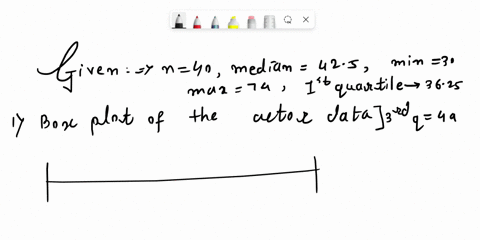 Given :=> n=40, median = 42.5, min = 30
max = 74, 1st quartile → 36.25
1) Box plot of the actor data] 3rd q = 49